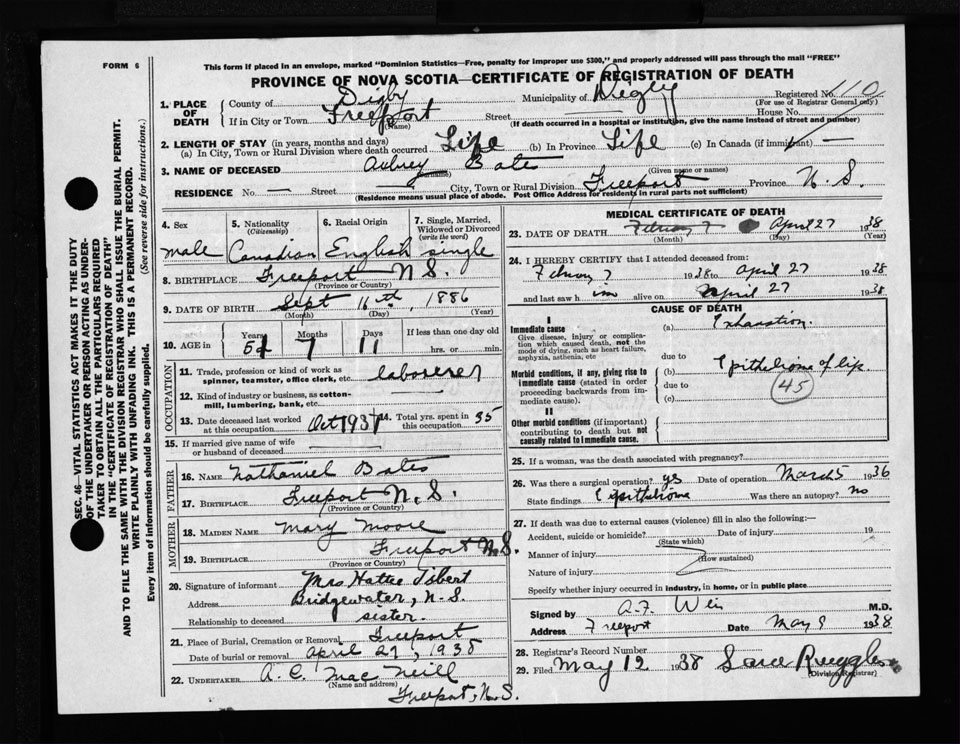 FORM 6
This form if placed in an envelope, marked "Dominion Statistics—Free, penalty for improper use $300," and properly addressed will pass through the mail "FREE"
PROVINCE OF NOVA SCOTIA—CERTIFICATE OF REGISTRATION OF DEATH
Registered No. 110
(For use of Registrar General only)
1. PLACE OF DEATH
County of Digby
Municipality of Digby
If in City or Town Freeport
(Name)
Street
House No.
(If death occurred in a hospital or institution, give the name instead of street and number)
2. LENGTH OF STAY (in years, months and days)
(a) In City, Town or Rural Division where death occurred Life (b) In Province Life (c) In Canada (if immigrant)
3. NAME OF DECEASED Aubrey Bate
(Given name or names)
RESIDENCE No. — Street City, Town or Rural Division Freeport Province N. S.
(Residence means usual place of abode. Post Office Address for residents in rural parts not sufficient)
4. Sex
male
5. Nationality
(Citizenship)
Canadian
6. Racial Origin
English
7. Single, Married,
Widowed or Divorced
(write the word)
single
8. BIRTHPLACE Freeport N S.
(Province or Country)
9. DATE OF BIRTH Sept 16th, 1886
(Month) (Day) (Year)
10. AGE in
Years Months Days If less than one day old
51 7 11 hrs. or min.
OCCUPATION
11. Trade, profession or kind of work as
spinner, teamster, office clerk, etc. laborerer
12. Kind of industry or business, as cotton-
mill, lumbering, bank, etc. —
13. Date deceased last worked
at this occupation Oct 1937
14. Total yrs. spent in
this occupation 35
15. If married give name of wife
or husband of deceased
FATHER
16. NAME Nathaniel Bates
17. BIRTHPLACE Freeport N. S.
(Province or Country)
MOTHER
18. MAIDEN NAME Mary Moore
19. BIRTHPLACE Freeport N. S.
(Province or Country)
20. Signature of informant Mrs Hattie Tibert
Address Bridgewater, N. S.
Relationship to deceased sister.
21. Place of Burial, Cremation or Removal Freeport
Date of burial or removal April 29, 1938
22. UNDERTAKER A. C. Mac Neill
(Name and address)
Freeport, N. S.
MEDICAL CERTIFICATE OF DEATH
23. DATE OF DEATH February 7 April 27 1938
(Month) (Day) (Year)
24. I HEREBY CERTIFY that I attended deceased from:
February 7 1938 to april 27 1938
and last saw him alive on april 27 1938
CAUSE OF DEATH
I
Immediate cause
Give disease, injury or complica-
tion which caused death, not the
mode of dying, such as heart failure,
asphyxia, asthenia, etc
(a) Exhaustion
due to
Morbid conditions, if any, giving rise to
immediate cause (stated in order
proceeding backwards from im-
mediate cause).
(b) Epithelioma of lip.
due to
(c)
45
II
Other morbid conditions (if important)
contributing to death but not
causally related to immediate cause.
25. If a woman, was the death associated with pregnancy?
26. Was there a surgical operation? yes Date of operation March 5 1936
State findings Epithelioma Was there an autopsy? No
27. If death was due to external causes (violence) fill in also the following:—
Accident, suicide or homicide? Date of injury 19
(State which)
Manner of injury
(How sustained)
Nature of injury
Specify whether injury occurred in industry, in home, or in public place
Signed by A. F. Weir M.D.
Address Freeport Date May 9 1938
28. Registrar's Record Number
29. Filed May 12 1938 Sara Ruggles
(Division Registrar)
SEC. 46—VITAL STATISTICS ACT MAKES IT THE DUTY
OF THE UNDERTAKER OR PERSON ACTING AS UNDER-
TAKER TO OBTAIN ALL THE PARTICULARS REQUIRED
IN THE "CERTIFICATE OF REGISTRATION OF DEATH"
AND TO FILE THE SAME WITH THE DIVISION REGISTRAR WHO SHALL ISSUE THE BURIAL PERMIT.
WRITE PLAINLY WITH UNFADING INK. THIS IS A PERMANENT RECORD.
Every item of information should be carefully supplied. (See reverse side for instructions.)